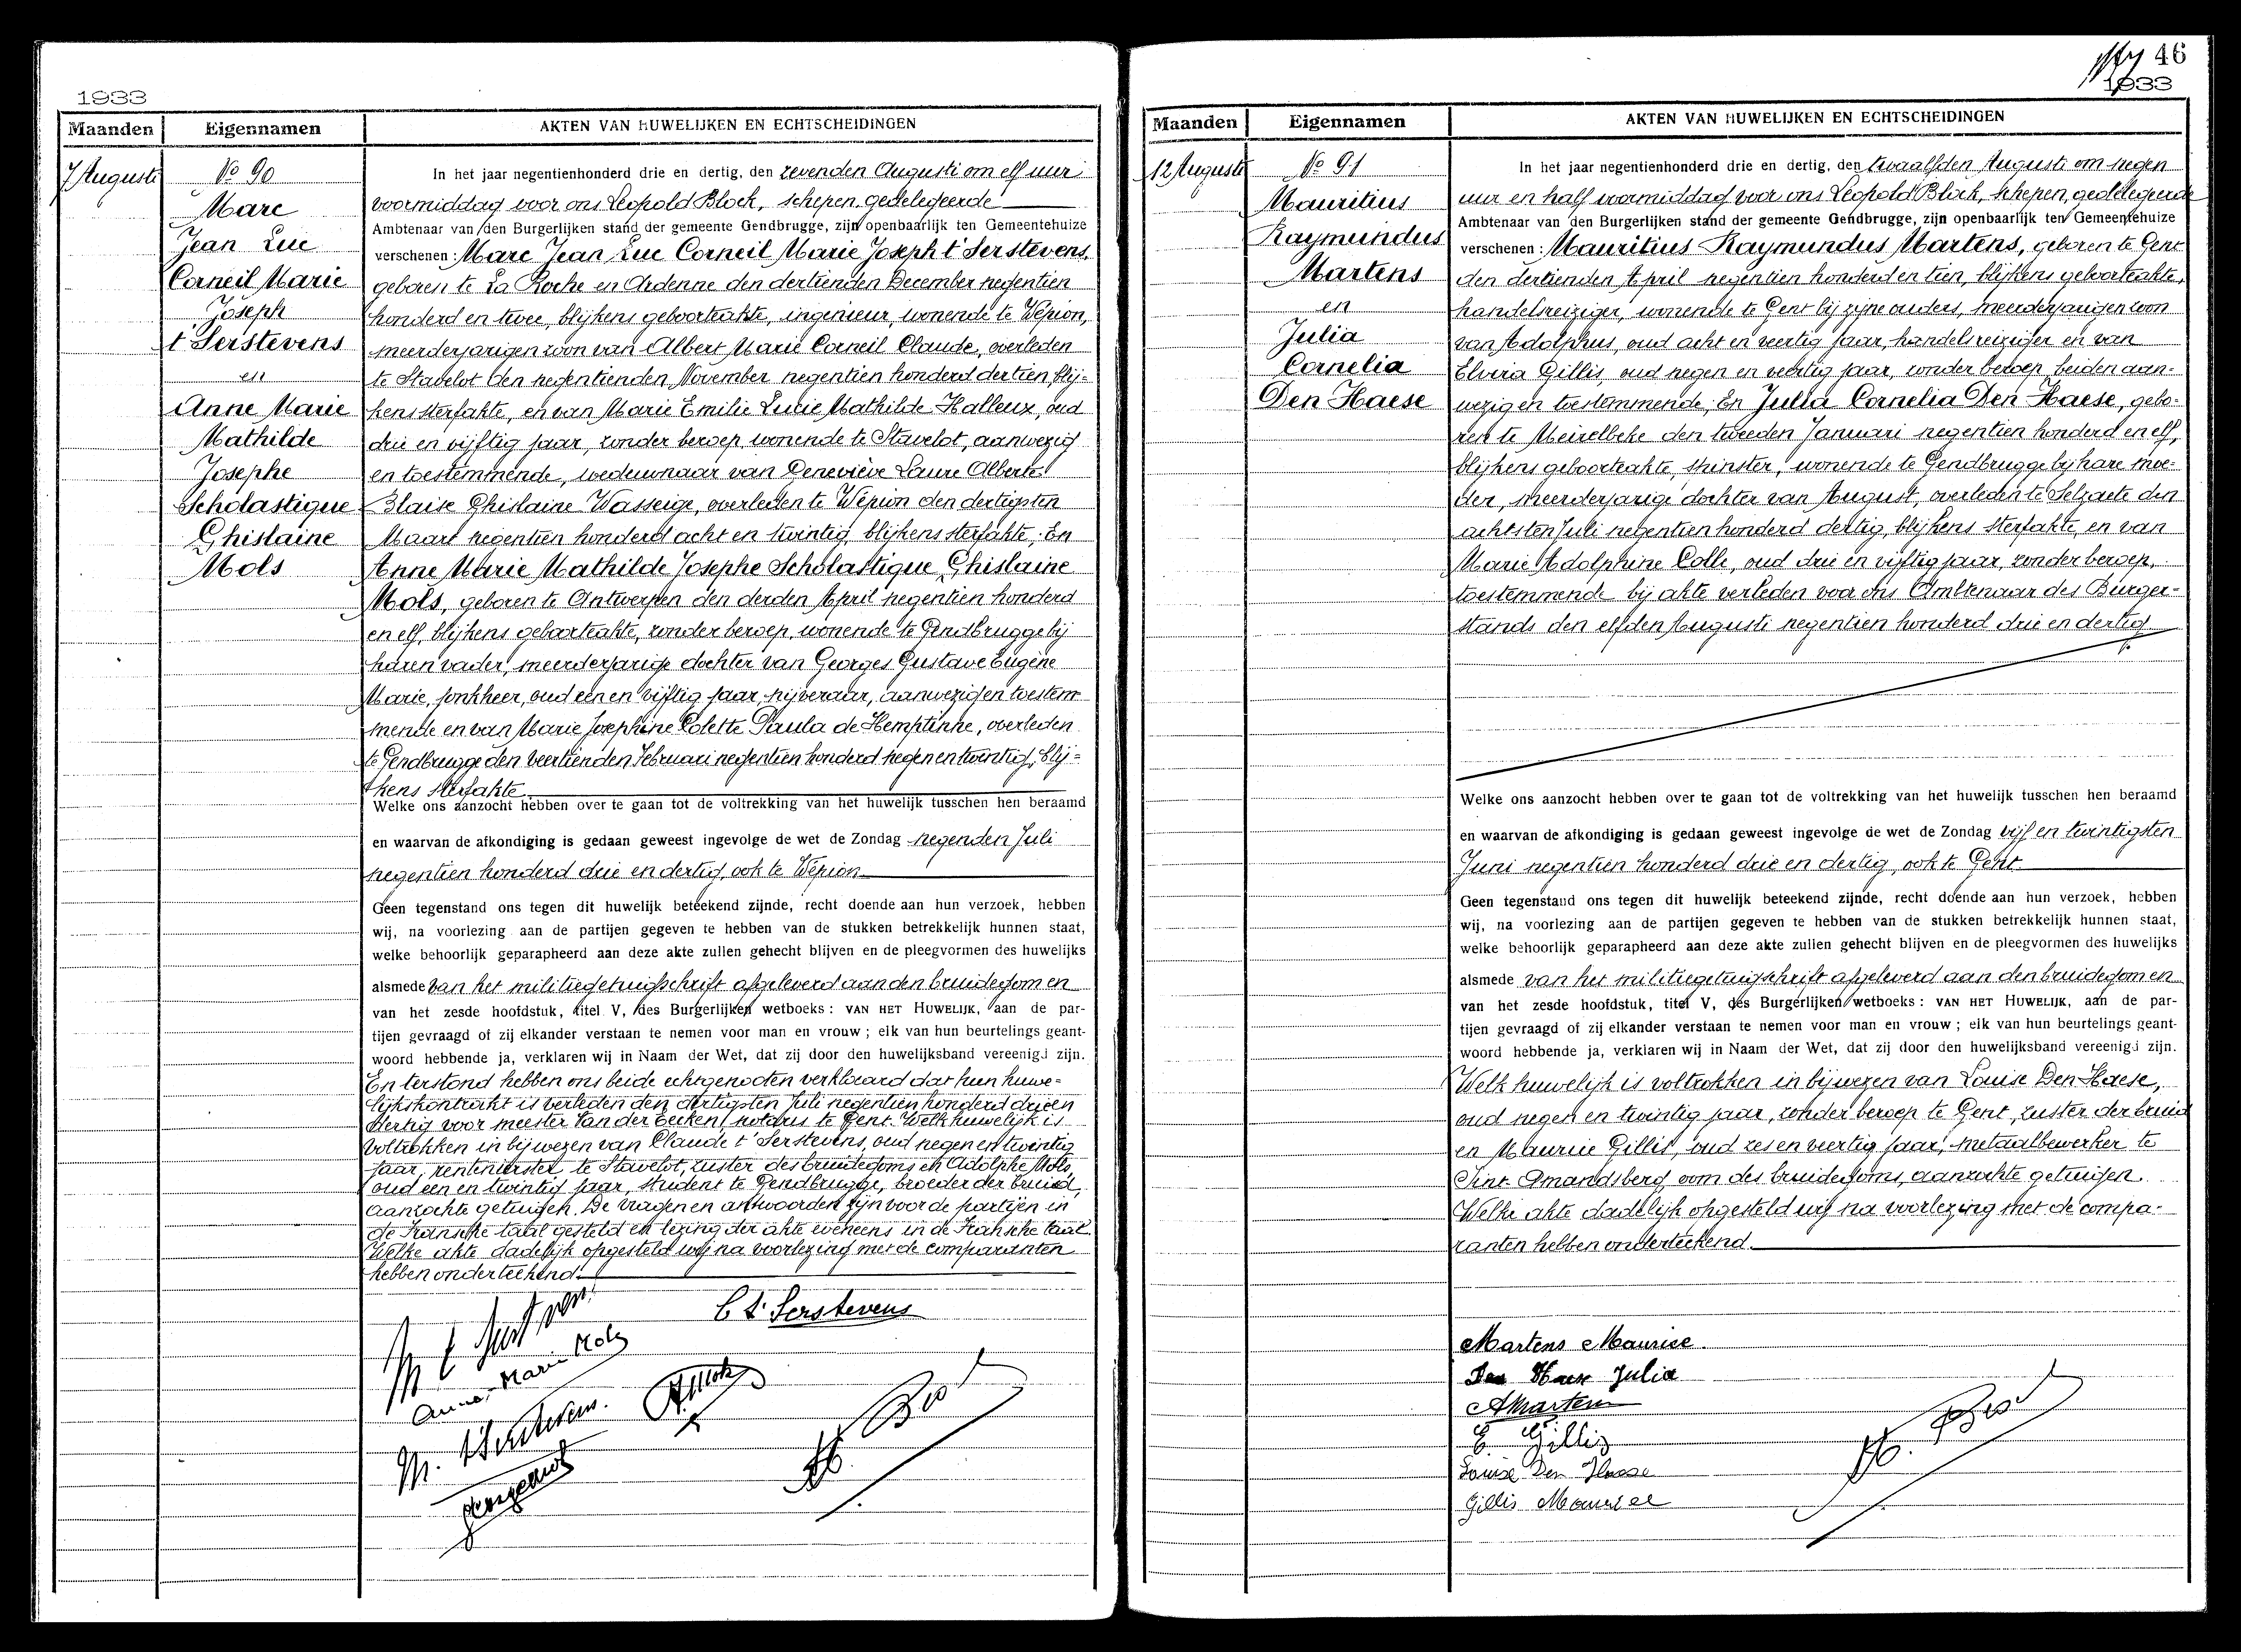 1933
Maanden
Eigennamen
AKTEN VAN HUWELIJKEN EN ECHTSCHEIDINGEN
7 Augusti
No 90
Marc
Jean Luc
Corneil Marie
Joseph
t'Serstevens
en
Anne Marie
Mathilde
Josephe
Scholastique
Ghislaine
Mols
In het jaar negentienhonderd drie en dertig, den zevenden Augusti om elf uur
voormiddag voor ons Leopold Block, schepen, gedelegeerde
Ambtenaar van den Burgerlijken stand der gemeente Gendbrugge, zijn openbaarlijk ten Gemeentehuize
verschenen: Marc Jean Luc Corneil Marie Joseph t'Serstevens,
geboren te La Roche en Ardenne den dertienden December negentien
honderd en twee, blijkens geboorteakte, ingenieur, wonende te Wépion,
meerderjarigen zoon van Albert Marie Corneil Claude, overleden
te Stavelot den negentienden November negentien honderd dertien, blij-
kens sterfakte, en van Marie Emilie Lucie Mathilde Halleux, oud
drie en vijftig jaar, zonder beroep, wonende te Stavelot, aanwezig
en toestemmende, weduwnaar van Geneviève Laure Alberte
Blaise Ghislaine Wasseige, overleden te Wépion den dertigsten
Maart negentien honderd acht en twintig, blijkens sterfakte; En
Anne Marie Mathilde Josephe Scholastique Ghislaine
Mols, geboren te Antwerpen den derden April negentien honderd
en elf, blijkens geboorteakte, zonder beroep, wonende te Gendbrugge bij
haren vader, meerderjarige dochter van Georges Gustave Eugène
Marie, jonkheer, oud een en vijftig jaar, nijveraar, aanwezig en toestem-
mende en van Marie Josephine Colette Paula de Hemptinne, overleden
te Gendbrugge den veertienden Februari negentien honderd negen en twintig, blij-
kens sterfakte
Welke ons aanzocht hebben over te gaan tot de voltrekking van het huwelijk tusschen hen beraamd
en waarvan de afkondiging is gedaan geweest ingevolge de wet de Zondag negenden Juli
negentien honderd drie en dertig, ook te Wépion
Geen tegenstand ons tegen dit huwelijk beteekend zijnde, recht doende aan hun verzoek, hebben
wij, na voorlezing aan de partijen gegeven te hebben van de stukken betrekkelijk hunnen staat,
welke behoorlijk geparapheerd aan deze akte zullen gehecht blijven en de pleegvormen des huwelijks
alsmede van het militiegetuigschrift afgeleverd aan den bruidegom en
van het zesde hoofdstuk, titel V, des Burgerlijken wetboeks: VAN HET HUWELIJK, aan de par-
tijen gevraagd of zij elkander verstaan te nemen voor man en vrouw; elk van hun beurtelings geant-
woord hebbende ja, verklaren wij in Naam der Wet, dat zij door den huwelijksband vereenigd zijn.
En terstond hebben ons beide echtgenooten verklaard dat hun huwe-
lijkskontrakt is verleden den dertigsten Juli negentien honderd drie en
dertig voor meester Van der Eecken, notaris te Gent. Welk huwelijk is
voltrokken in bijwezen van Claude t'Serstevens, oud negen en twintig
jaar, rentenierster te Stavelot, zuster des bruidegoms en Adolphe Mols,
oud een en twintig jaar, student te Gendbrugge, broeder der bruid,
aanzochte getuigen. De vragen en antwoorden zijn voor de partijen in
de Fransche taal gesteld en lezing der akte eveneens in de Fransche taal.
Welke akte dadelijk opgesteld wij na voorlezing met de comparanten
hebben onderteekend.
C t'Serstevens
Anne-Marie Mols
M. t'Serstevens.
46
1933
Maanden
Eigennamen
AKTEN VAN HUWELIJKEN EN ECHTSCHEIDINGEN
12 Augusti
No 91
Mauritius
Raymundus
Martens
en
Julia
Cornelia
Den Haese
In het jaar negentienhonderd drie en dertig, den twaalfden Augusti om negen
uur en half voormiddag voor ons Leopold Block, schepen, gedelegeerde
Ambtenaar van den Burgerlijken stand der gemeente Gendbrugge, zijn openbaarlijk ten Gemeentehuize
verschenen: Mauritius Raymundus Martens, geboren te Gent
den dertienden April negentien honderd en tien, blijkens geboorteakte,
handelsreiziger, wonende te Gent bij zijne ouders, meerderjarigen zoon
van Adolphus, oud acht en veertig jaar, handelsreiziger en van
Elvira Gillis, oud negen en veertig jaar, zonder beroep, beiden aan-
wezig en toestemmende; En Julia Cornelia Den Haese, gebo-
ren te Meirelbeke den tweeden Januari negentien honderd en elf,
blijkens geboorteakte, stikster, wonende te Gendbrugge bij hare moe-
der, meerderjarige dochter van August, overleden te Selzaete den
achtsten Juli negentien honderd dertig, blijkens sterfakte, en van
Marie Adolphine Colle, oud drie en vijftig jaar, zonder beroep,
toestemmende bij akte verleden voor ons Ambtenaar des Burger-
stands den elfden Augusti negentien honderd drie en dertig
Welke ons aanzocht hebben over te gaan tot de voltrekking van het huwelijk tusschen hen beraamd
en waarvan de afkondiging is gedaan geweest ingevolge de wet de Zondag vijf en twintigsten
Juni negentien honderd drie en dertig, ook te Gent.
Geen tegenstand ons tegen dit huwelijk beteekend zijnde, recht doende aan hun verzoek, hebben
wij, na voorlezing aan de partijen gegeven te hebben van de stukken betrekkelijk hunnen staat,
welke behoorlijk geparapheerd aan deze akte zullen gehecht blijven en de pleegvormen des huwelijks
alsmede van het militiegetuigschrift afgeleverd aan den bruidegom en
van het zesde hoofdstuk, titel V, des Burgerlijken wetboeks: VAN HET HUWELIJK, aan de par-
tijen gevraagd of zij elkander verstaan te nemen voor man en vrouw; elk van hun beurtelings geant-
woord hebbende ja, verklaren wij in Naam der Wet, dat zij door den huwelijksband vereenigd zijn.
Welk huwelijk is voltrokken in bijwezen van Louise Den Haese,
oud negen en twintig jaar, zonder beroep te Gent, zuster der bruid
en Maurice Gillis, oud zes en veertig jaar, metaalbewerker te
Sint Amandsberg, oom des bruidegoms, aanzochte getuigen.
Welke akte dadelijk opgesteld wij na voorlezing met de compa-
ranten hebben onderteekend.
Martens Maurice.
Den Haese Julia
AMartens
E. Gillis
Louise Den Haese
Gillis Maurice